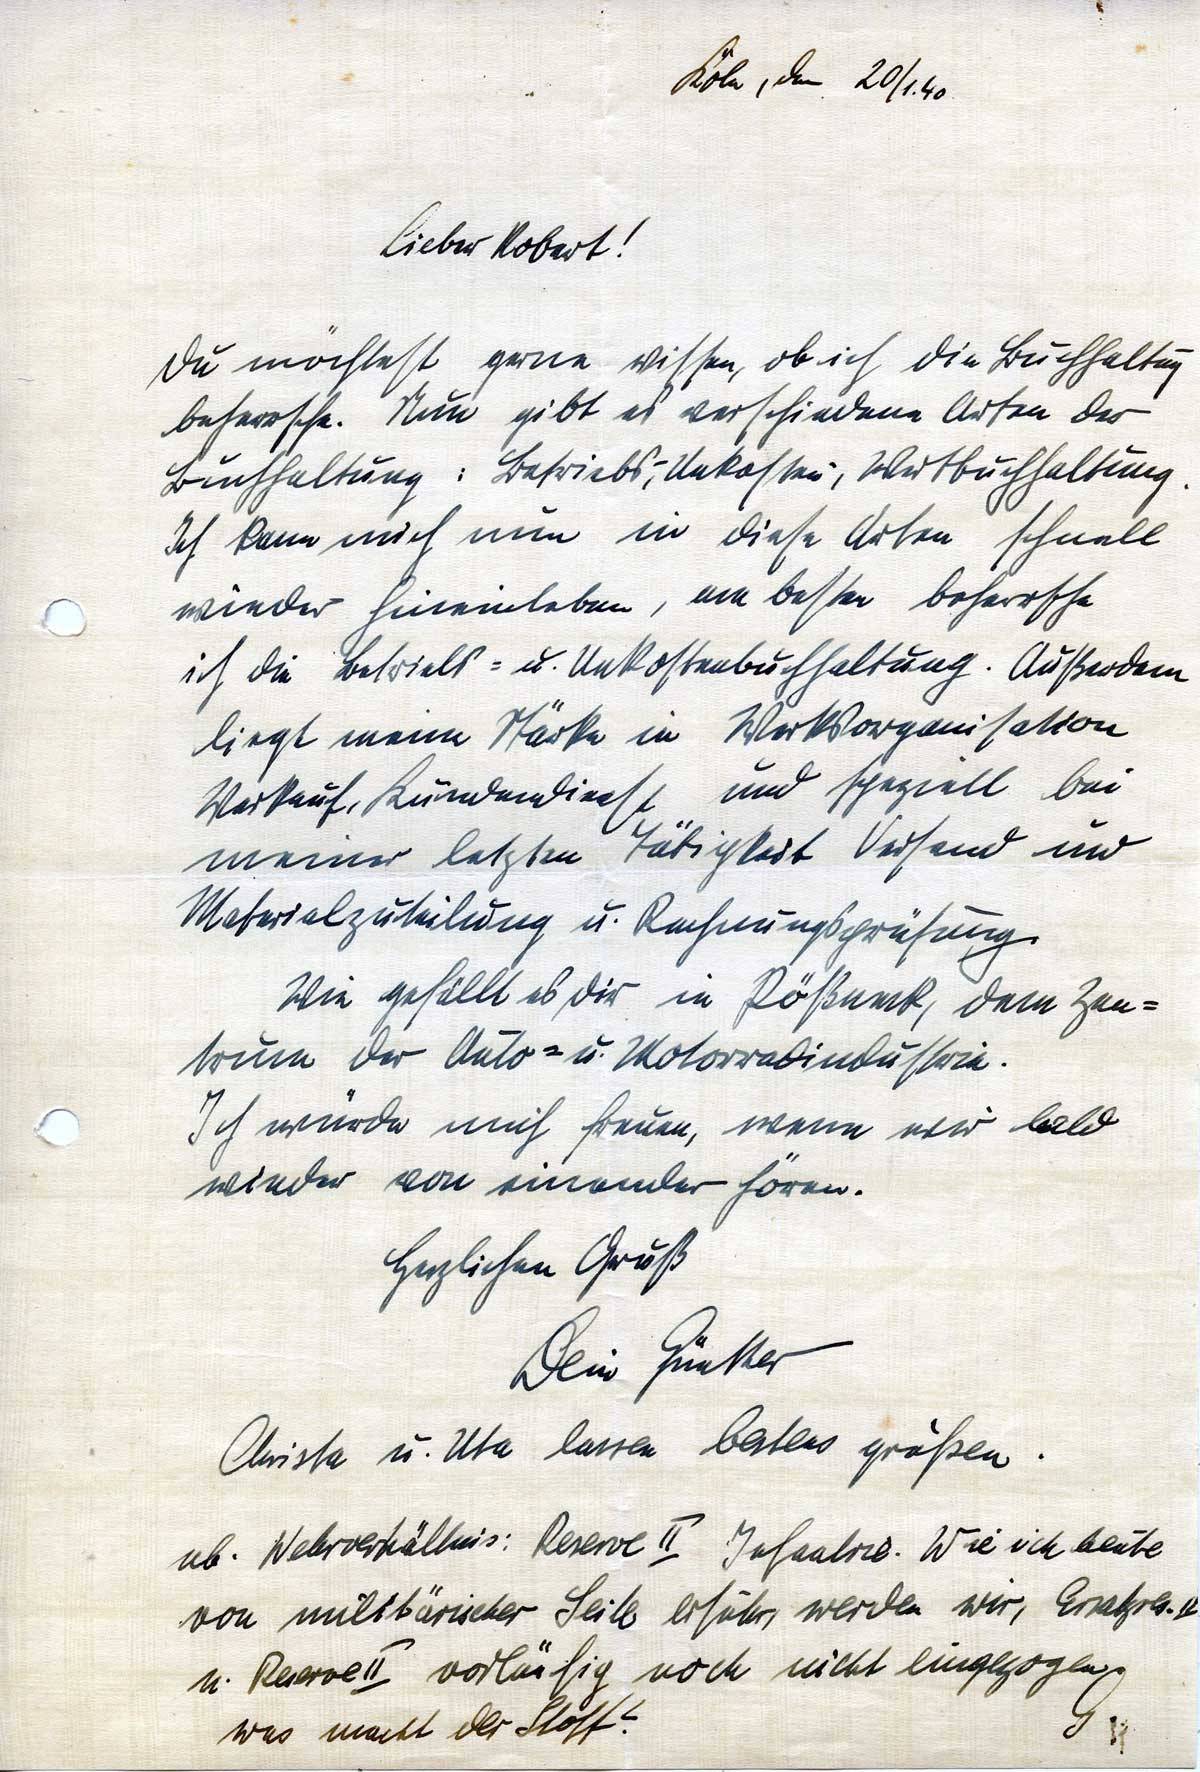 Köln, den 20/1.40
Lieber Robert!
Du möchtest gerne wissen, ob ich die Buchhaltung
beherrsche. Nun gibt es verschiedene Arten der
Buchhaltung: Betriebs-, Unkosten, Wertbuchhaltung.
Ich kann mich nun in diese Arten schnell
wieder hineinleben, am besten beherrsche
ich die Betriebs= u. Unkostenbuchhaltung. Außerdem
liegt meine Stärke in Werksorganisation
Verkauf, Kundendienst und speziell bei
meiner letzten Tätigkeit Versand und
Materialzuteilung u. Rechnungsprüfung.
Wie gefällt es dir in Pößneck, dem Zen=
trum der Auto= u. Motorradindustrie.
Ich würde mich freuen, wenn wir bald
wieder von einander hören.
Herzlichen Gruß
Dein Günther
Christa u. Uta lassen bestens grüßen.
nb. Wehrverhältnis: Reserve II Infanterie. Wie ich heute
von militärischer Seite erfuhr, werden wir, Ersatzres. II
u. Reserve II vorläufig noch nicht eingezogen.
was macht der Stoff?
G